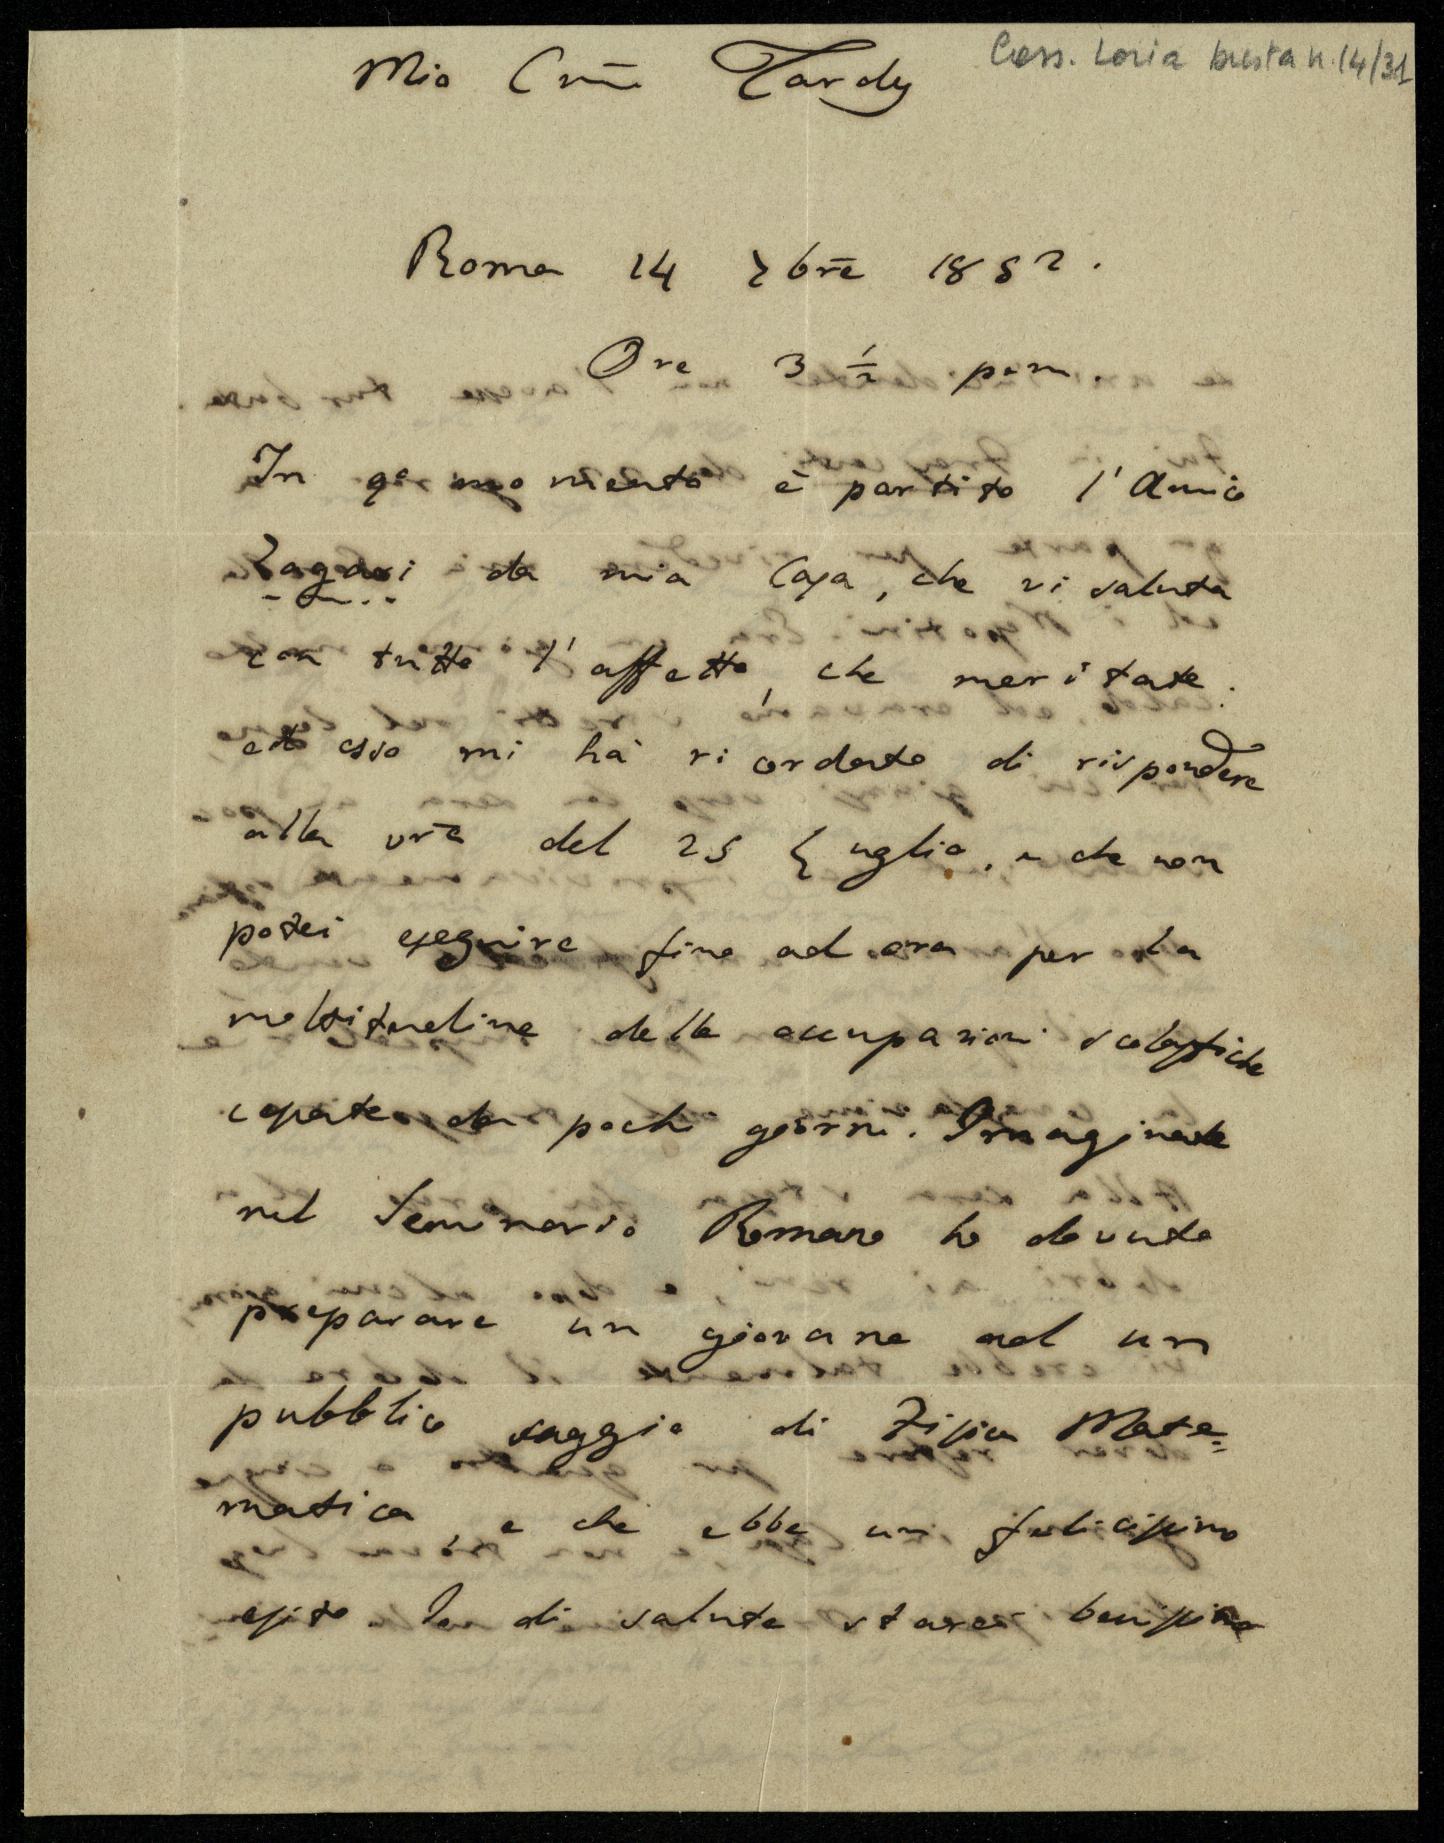 Cass. Loria busta n. 14/31
Mio Cmo Tardy
Roma 14 7bre 1852.
Ore 3 1/2 pom
In qo momento è partito l'Amico
Zagari da mia Casa, che vi saluta
con tutto l'affetto, che meritate.
ed esso mi hà ricordato di rispondere
alla vra del 25 Luglio, e che non
potei eseguire fino ad ora per la
moltitudine delle occupazioni scolastiche
cessate da pochi giorni. Immaginate
nel Seminario Romano ho dovuto
preparare un giovane ad un
pubblico saggio di Fisica Mate=
matica, e che ebbe un felicissimo
esito Io di salute starei benissimo